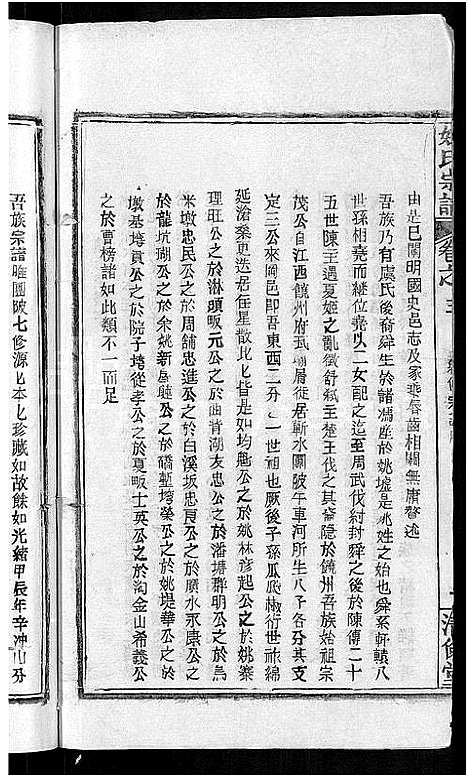 姚氏宗譜
卷之三
由是已關明國史邑志及家乘唇齒相關無庸贅述
吾族乃有虞氏後裔舜生於諸馮產於姚墟是兆姓之始也舜系軒轅八
世孫相堯而繼位堯以二女配之迄至周武伐紂封舜之後於陳傳二十
五世陳王遇夏姬之亂徵舒弒王楚王伐之其裔隱於饒州吾族始祖宗
茂公自江西饒州府瓦屑徙居蘄水團陂午車河所生八子各分其支
定三公來岡邑即吾東西二分之一世祖也厥後子孫瓜瓞椒衍世祚綿
延滄桑更迭居住星散比比皆是如均魁公之於姚林彥起公之於姚寨
理旺公之於湫頭畈元公之於曲背湖友忠公之於潘塘聯明公之於馬
米墩忠民公之於周鋪忠進公之於白溪坂忠良公之於廣水永康公之
於龍坑瑚公之於余姚新居曉公之於碼塹塆榮公之於姚堤華公之於
墩基塆貢公之於院子塆從孝公之於夏畈士英公之於淘金山希義公
之於曹榜諸如此類不一而足
吾族宗譜雖團陂七修源比本比珍藏如故餘如光緒甲辰年辛冲山分